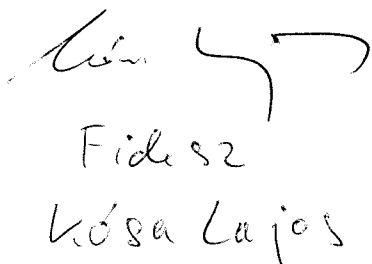 Fidesz
Kósa Lajos